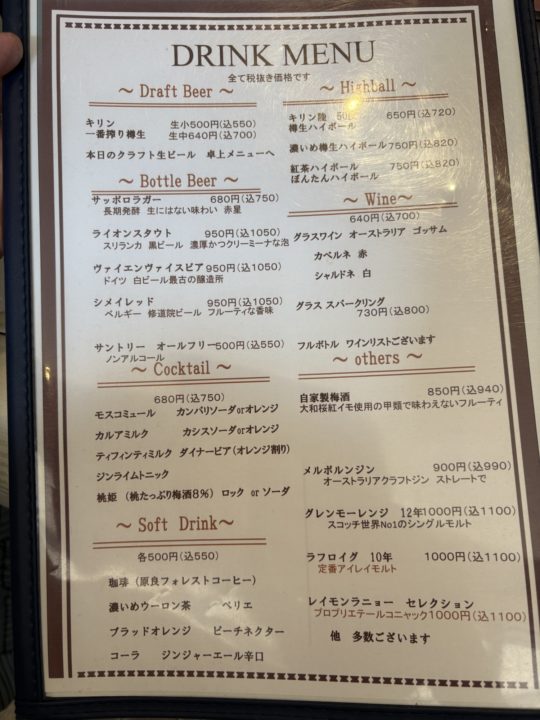 DRINK MENU
全て税抜き価格です
～ Draft Beer ～
キリン 生小500円(込550)
一番搾り樽生 生中640円(込700)
本日のクラフト生ビール 卓上メニューへ
～ Bottle Beer ～
サッポロラガー 680円(込750)
長期発酵 生にはない味わい 赤星
ライオンスタウト 950円(込1050)
スリランカ 黒ビール 濃厚かつクリーミーな泡
ヴァイエンヴァイスビア 950円(込1050)
ドイツ 白ビール最古の醸造所
シメイレッド 950円(込1050)
ベルギー 修道院ビール フルーティな香味
サントリー オールフリー 500円(込550)
ノンアルコール
～ Cocktail ～
680円(込750)
モスコミュール カンパリソーダorオレンジ
カルアミルク カシスソーダorオレンジ
ティフィンティミルク ダイナービア(オレンジ割り)
ジンライムトニック
桃姫 (桃たっぷり梅酒8%) ロック or ソーダ
～ Soft Drink～
各500円(込550)
珈琲 (原良フォレストコーヒー)
濃いめウーロン茶 ペリエ
ブラッドオレンジ ピーチネクター
コーラ ジンジャーエール辛口
～ Highball ～
キリン陸 650円(込720)
樽生ハイボール
濃いめ樽生ハイボール 750円(込820)
紅茶ハイボール 750円(込820)
ぼんたんハイボール
～ Wine～
640円(込700)
グラスワイン オーストラリア ゴッサム
カベルネ 赤
シャルドネ 白
グラス スパークリング
730円(込800)
フルボトル ワインリストございます
～ others ～
自家製梅酒 850円(込940)
大和桜紅イモ使用の甲類で味わえないフルーティ
メルボルンジン 900円(込990)
オーストラリアクラフトジン ストレートで
グレンモーレンジ 12年 1000円(込1100)
スコッチ世界No1のシングルモルト
ラフロイグ 10年 1000円(込1100)
定番アイレイモルト
レイモンラニョー セレクション
プロプリエテールコニャック 1000円(込1100)
他 多数ございます